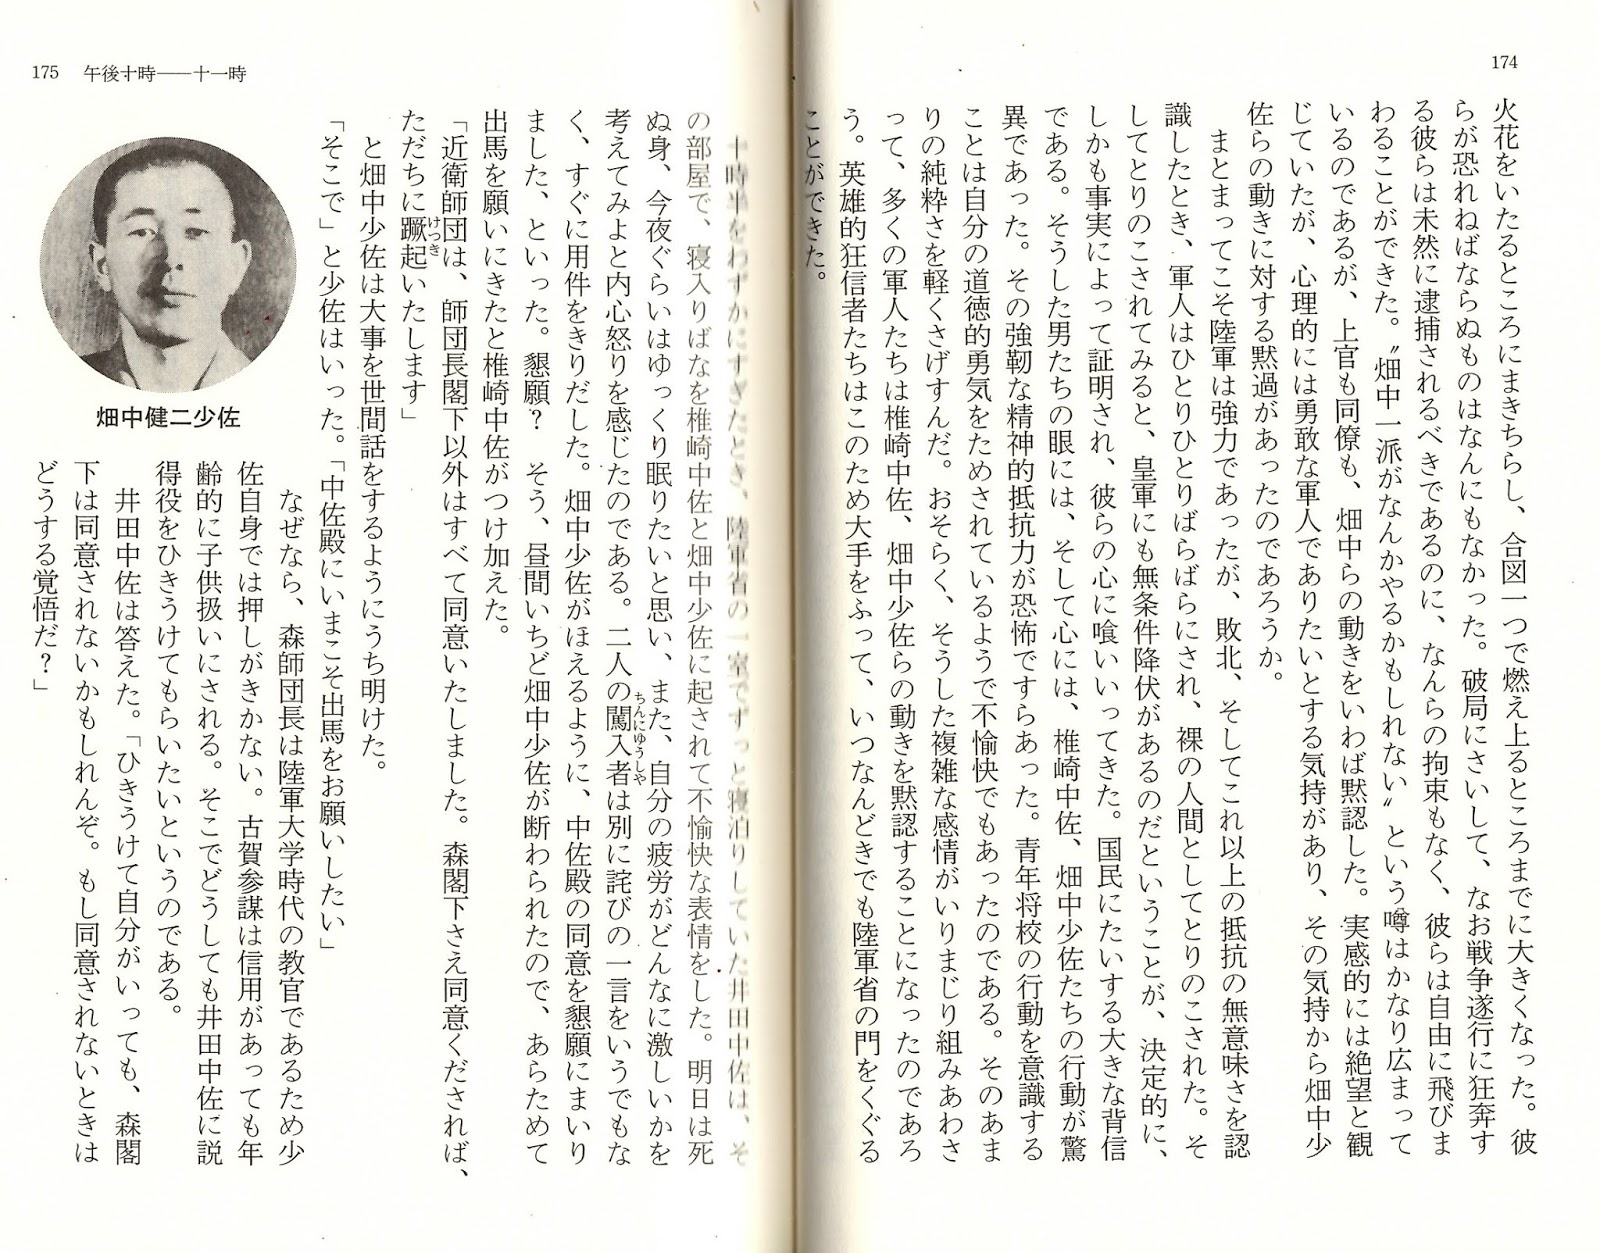 174
火花をいたるところにまきちらし、合図一つで燃え上るところまでに大きくなった。彼
らが恐れねばならぬものはなんにもなかった。破局にさいして、なお戦争遂行に狂奔す
る彼らは未然に逮捕されるべきであるのに、なんらの拘束もなく、彼らは自由に飛びま
わることができた。〝畑中一派がなんかやるかもしれない〟という噂はかなり広まって
いるのであるが、上官も同僚も、畑中らの動きをいわば黙認した。実感的には絶望と観
じていたが、心理的には勇敢な軍人でありたいとする気持があり、その気持から畑中少
佐らの動きに対する黙過があったのであろうか。
まとまってこそ陸軍は強力であったが、敗北、そしてこれ以上の抵抗の無意味さを認
識したとき、軍人はひとりひとりばらばらにされ、裸の人間としてとりのこされた。そ
してとりのこされてみると、皇軍にも無条件降伏があるのだということが、決定的に、
しかも事実によって証明され、彼らの心に喰いいってきた。国民にたいする大きな背信
である。そうした男たちの眼には、そして心には、椎崎中佐、畑中少佐たちの行動が驚
異であった。その強靭な精神的抵抗力が恐怖ですらあった。青年将校の行動を意識する
ことは自分の道徳的勇気をためされているようで不愉快でもあったのである。そのあま
りの純粋さを軽くさげすんだ。おそらく、そうした複雑な感情がいりまじり組みあわさ
って、多くの軍人たちは椎崎中佐、畑中少佐らの動きを黙認することになったのであろ
う。英雄的狂信者たちはこのため大手をふって、いつなんどきでも陸軍省の門をくぐる
ことができた。
175 午後十時――十一時
十時半をわずかにすぎたとき、陸軍省の一室でずっと寝泊りしていた井田中佐は、そ
の部屋で、寝入りばなを椎崎中佐と畑中少佐に起されて不愉快な表情をした。明日は死
ぬ身、今夜ぐらいはゆっくり眠りたいと思い、また、自分の疲労がどんなに激しいかを
考えてみよと内心怒りを感じたのである。二人の闖入者ちんにゆうしやは別に詫びの一言をいうでもな
く、すぐに用件をきりだした。畑中少佐がほえるように、中佐殿の同意を懇願にまいり
ました、といった。懇願？　そう、昼間いちど畑中少佐が断わられたので、あらためて
出馬を願いにきたと椎崎中佐がつけ加えた。
「近衛師団は、師団長閣下以外はすべて同意いたしました。森閣下さえ同意くだされば、
ただちに蹶起けつきいたします」
と畑中少佐は大事を世間話をするようにうち明けた。
「そこで」と少佐はいった。「中佐殿にいまこそ出馬をお願いしたい」
なぜなら、森師団長は陸軍大学時代の教官であるため少
佐自身では押しがきかない。古賀参謀は信用があっても年
齢的に子供扱いにされる。そこでどうしても井田中佐に説
得役をひきうけてもらいたいというのである。
井田中佐は答えた。「ひきうけて自分がいっても、森閣
下は同意されないかもしれんぞ。もし同意されないときは
どうする覚悟だ？」
畑中健二少佐